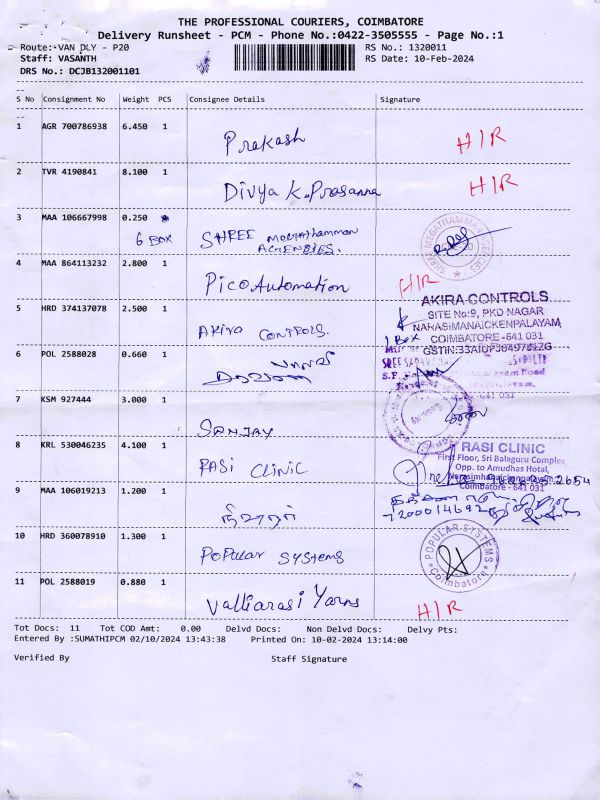 THE PROFESSIONAL COURIERS, COIMBATORE
Delivery Runsheet - PCM - Phone No.:0422-3505555 - Page No.:1
Route: VAN DLY - P20
RS No.: 1320011
Staff: VASANTH
RS Date: 10-Feb-2024
DRS No.: DCJB132001101
S No Consignment No Weight PCS Consignee Details Signature
1 AGR 700786938 6.450 1 Prakash H/R
2 TVR 4190841 8.100 1 Divya K.Prasanna H/R
3 MAA 106667998 0.250 SHREE
6 BOX AGENCIES.
4 MAA 864113232 2.800 1 Pico Automation H/R
5 HRD 374137078 2.500 1 Akira CONTROLS.
AKIRA CONTROLS
SITE No:9, PKD NAGAR
NARASIMANAICKENPALAYAM,
1 Box COIMBATORE-641 031
6 POL 2588028 0.660 1
641 031
7 KSM 927444 3.000 1 SANJAY
8 KRL 530046235 4.100 1 RASI CLINIC
RASI CLINIC
First Floor, Sri Balaguru Complex,
Opp. to Amudhas Hotal,
Coimbatore - 641 031
9 MAA 106019213 1.200 1
10 HRD 360078910 1.300 1 POPULAR SYSTEMS
POPULAR SYSTEMS
Coimbatore
11 POL 2588019 0.880 1 Valliarasi Yarns H/R
Tot Docs: 11 Tot COD Amt: 0.00 Delvd Docs: Non Delvd Docs: Delvy Pts:
Entered By :SUMATHIPCM 02/10/2024 13:43:38 Printed On: 10-02-2024 13:14:00
Verified By Staff Signature